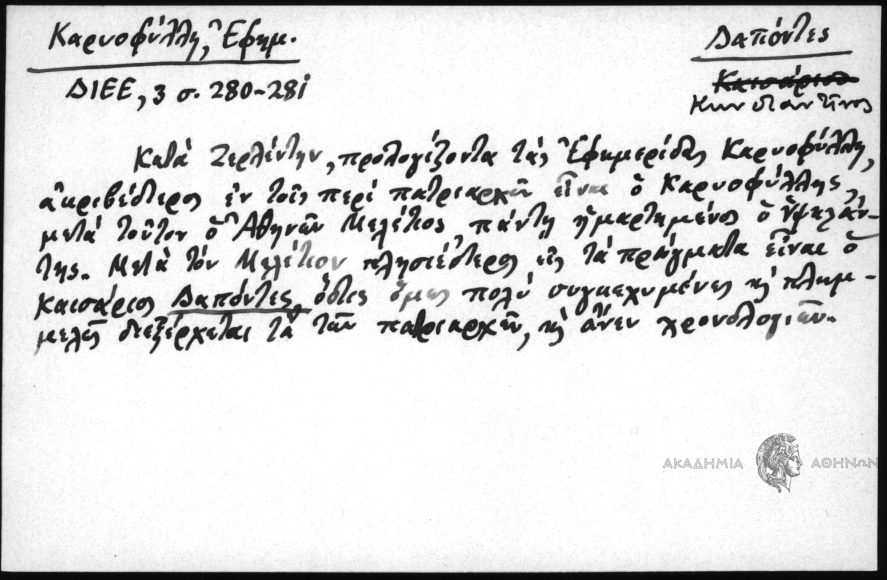 Καρυοφύλλη, Ἐφημ.
Δαπόντες
ΔΙΕΕ, 3 σ. 280-281
Καισάριος
Κωνσταντῖνος
Κατὰ Ζερλέντην, προλογίζοντα τὰς Ἐφημερίδας Καρυοφύλλη,
ἀκριβέστερος ἐν τοῖς περὶ πατριαρχῶν εἶναι ὁ Καρυοφύλλης,
μετὰ τοῦτον ὁ Ἀθηνῶν Μελέτιος, πάντη ἡμαρτημένος ὁ Ὑψηλάν-
της. Μετὰ τὸν Μελέτιον πλησιέστερος εἰς τὰ πράγματα εἶναι ὁ
Καισάριος Δαπόντες, ὅστις ὅμως πολὺ συγκεχυμένως κ πλημ-
μελῶς διεξέρχεται τὰ τῶν πατριαρχῶν, κ ἄνευ χρονολογιῶν.
ΑΚΑΔΗΜΙΑ ΑΘΗΝΩΝ